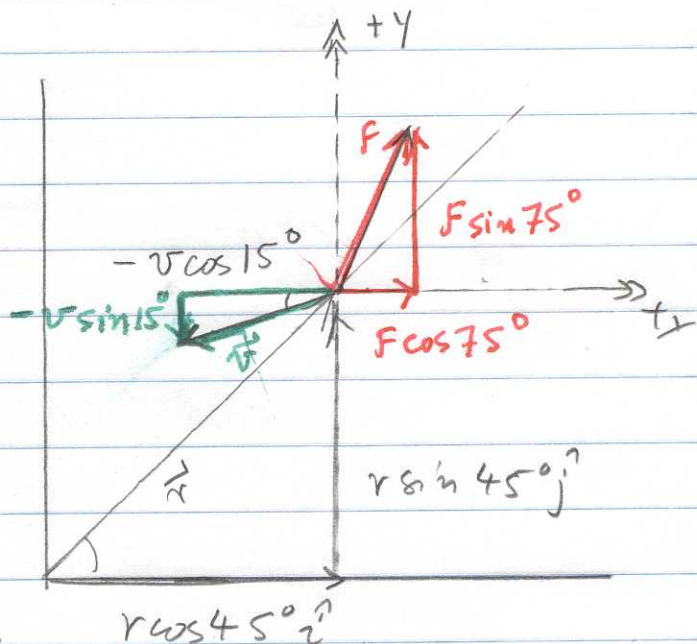 +y
F
F sin 75°
- v cos 15°
- v sin 15°
+x
F cos 75°
v⃗
r⃗
r sin 45° ĵ
r cos 45° î